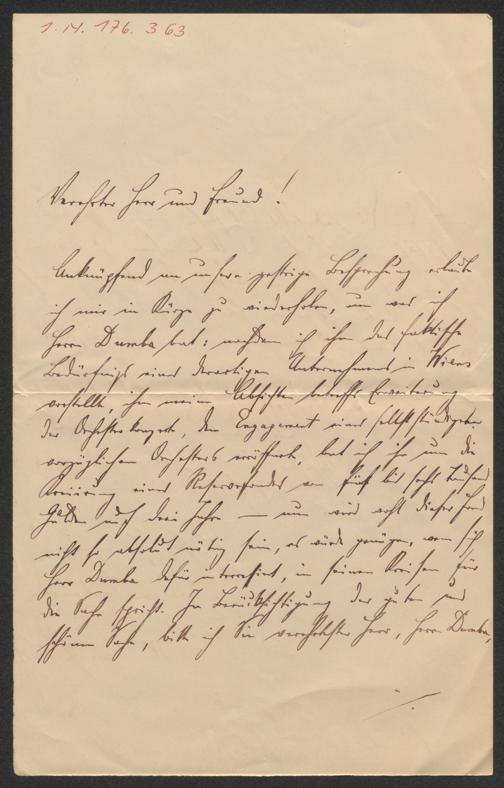 1. N. 176. 363
Verehrter Herr und Freund!
Anknüpfend an unsere gestrige Besprechung erlaube
ich mir in Kürze zu wiederholen, um was ich
Herrn Dumba bat: nachdem ich ihm das faktische
Bedürfniß eines derartigen Unternehmens in Wien
vorstellte, ihm meine Absichten betreffs Erweiterung
der Orchesterkonzerte, dem Engagement eines selbstständigen
vorzüglichen Orchesters eröffnete, bat ich ihn um die
Creirung eines Reservefondes von fünf bis sechs Tausend
Gulden auf drei Jahre — nun wird wohl dieser Fond
nicht so absolut nötig sein, es würde genügen, wenn sich
Herr Dumba dafür interessirt, in seinen Kreisen für
die Sache spricht. In Berücksichtigung der guten und
schönen Sache, bitte ich Sie verehrtester Herr, Herrn Dumba,